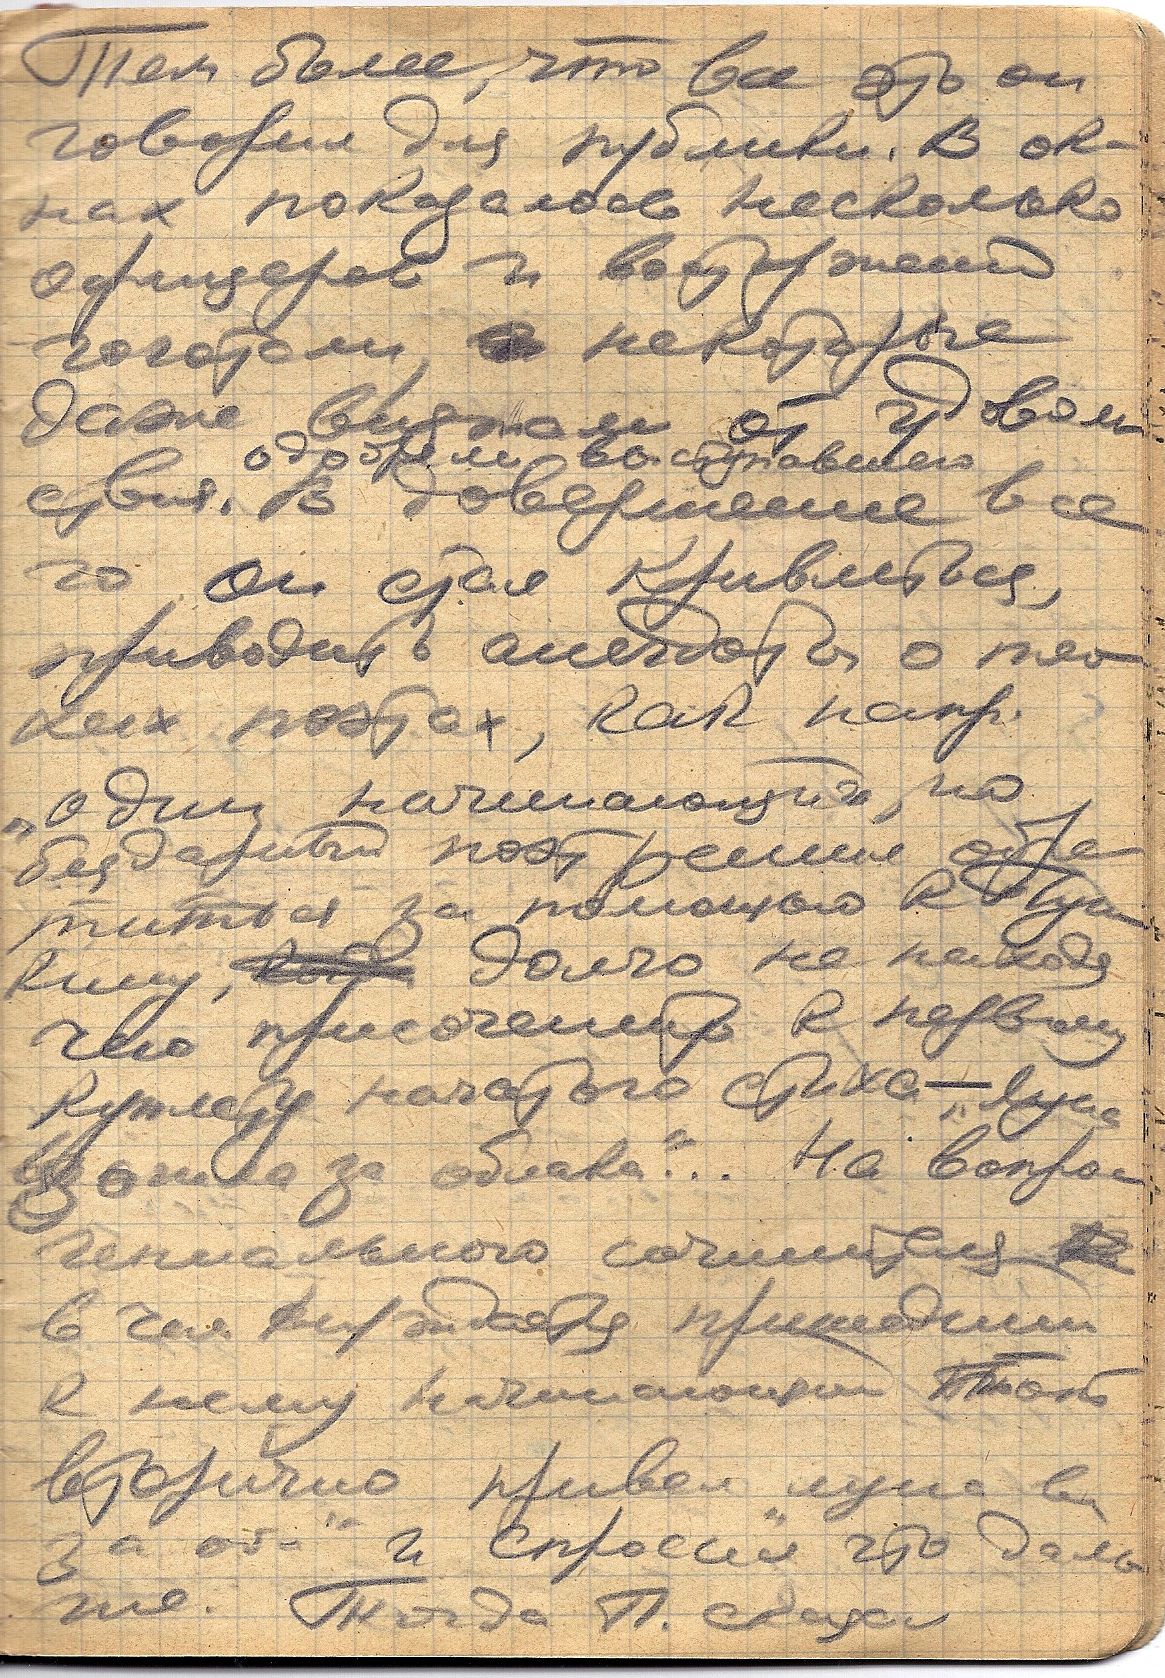 Тем более, что все это он
говорил для публики. В ок-
нах показалось несколько
офицеров и
гоготали, некоторые
даже визжали от удоволь
одобряли выступавшего
ствия. В довершение все
го он стал кривляться,
приводить анекдоты о
поэтах, как напр.
„один начинающий, но
бездарный поэт решил обра
титься за помощью к Пуш
кину, долго не находя
чего присочинить к первому
куплету начатого стиха — „луна
взошла за облака“... На вопрос
гениального сочинителя
в чем нуждается пришедший
к нему начинающий поэт
вторично привел „луна в.
за об.“ и спросил „что даль
ше. Тогда П. сказал